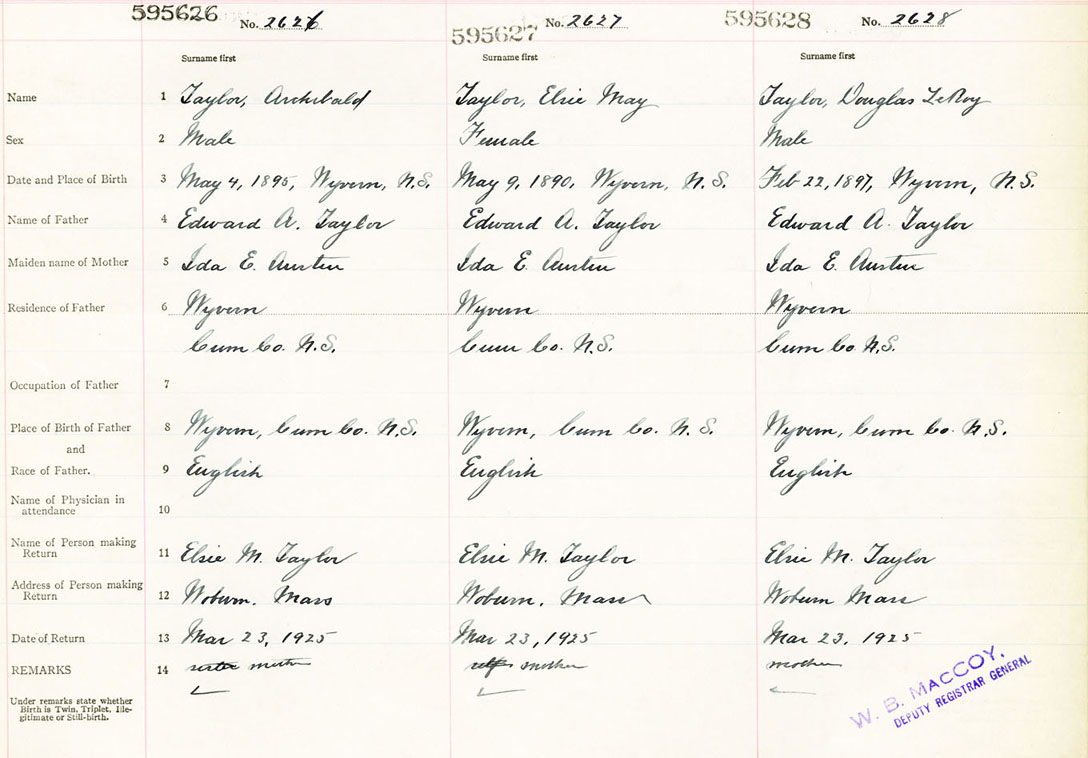 595626 No. 2626 595627 No. 2627 595628 No. 2628
Surname first Surname first Surname first
Name 1 Taylor, Archibald Taylor, Elsie May Taylor, Douglas LeRoy
Sex 2 Male Female Male
Date and Place of Birth 3 May 4, 1895, Wyvern, N.S. May 9, 1890, Wyvern, N.S. Feb 22, 1897, Wyvern, N.S.
Name of Father 4 Edward A. Taylor Edward A. Taylor Edward A. Taylor
Maiden name of Mother 5 Ida E. Austin Ida E. Austin Ida E. Austin
Residence of Father 6 Wyvern Wyvern Wyvern
Cum Co. N.S. Cum Co. N.S. Cum Co N.S.
Occupation of Father 7
Place of Birth of Father 8 Wyvern, Cum Co. N.S. Wyvern, Cum Co. N.S. Wyvern, Cum Co. N.S.
and
Race of Father. 9 English English English
Name of Physician in
attendance 10
Name of Person making
Return 11 Elsie M. Taylor Elsie M. Taylor Elsie M. Taylor
Address of Person making
Return 12 Woburn, Mass Woburn, Mass Woburn Mass
Date of Return 13 Mar 23, 1925 Mar 23, 1925 Mar 23, 1925
REMARKS 14 sister mother self mother mother
Under remarks state whether
Birth is Twin, Triplet, Ille-
gitimate or Still-birth.
W. B. MACCOY,
DEPUTY REGISTRAR GENERAL